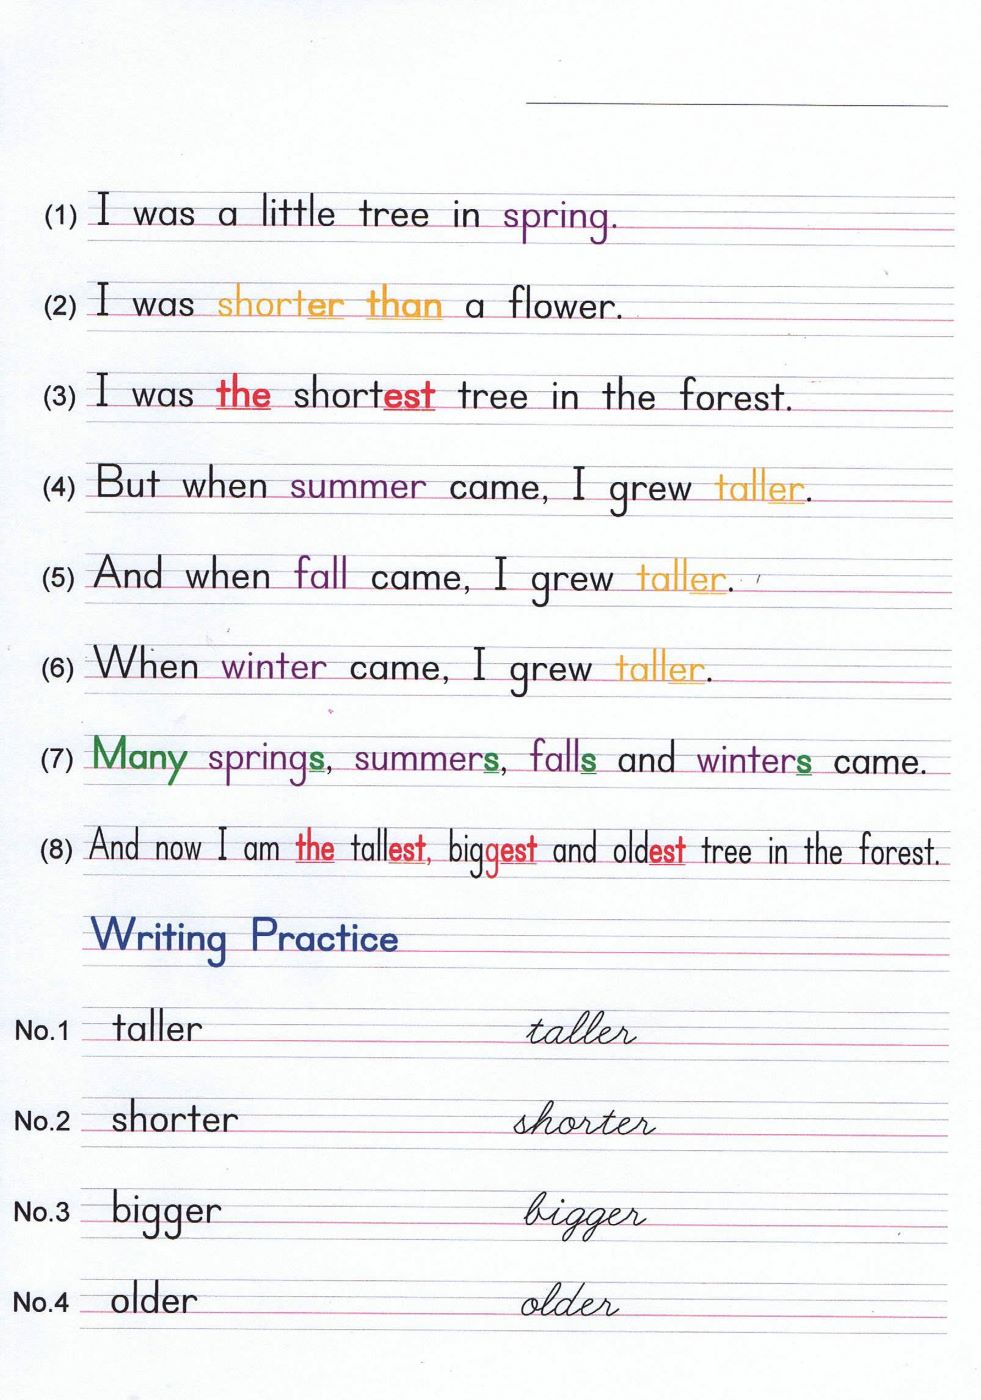 (1) I was a little tree in spring.
(2) I was shorter than a flower.
(3) I was the shortest tree in the forest.
(4) But when summer came, I grew taller.
(5) And when fall came, I grew taller.
(6) When winter came, I grew taller.
(7) Many springs, summers, falls and winters came.
(8) And now I am the tallest, biggest and oldest tree in the forest.
Writing Practice
No.1 taller taller
No.2 shorter shorter
No.3 bigger bigger
No.4 older older